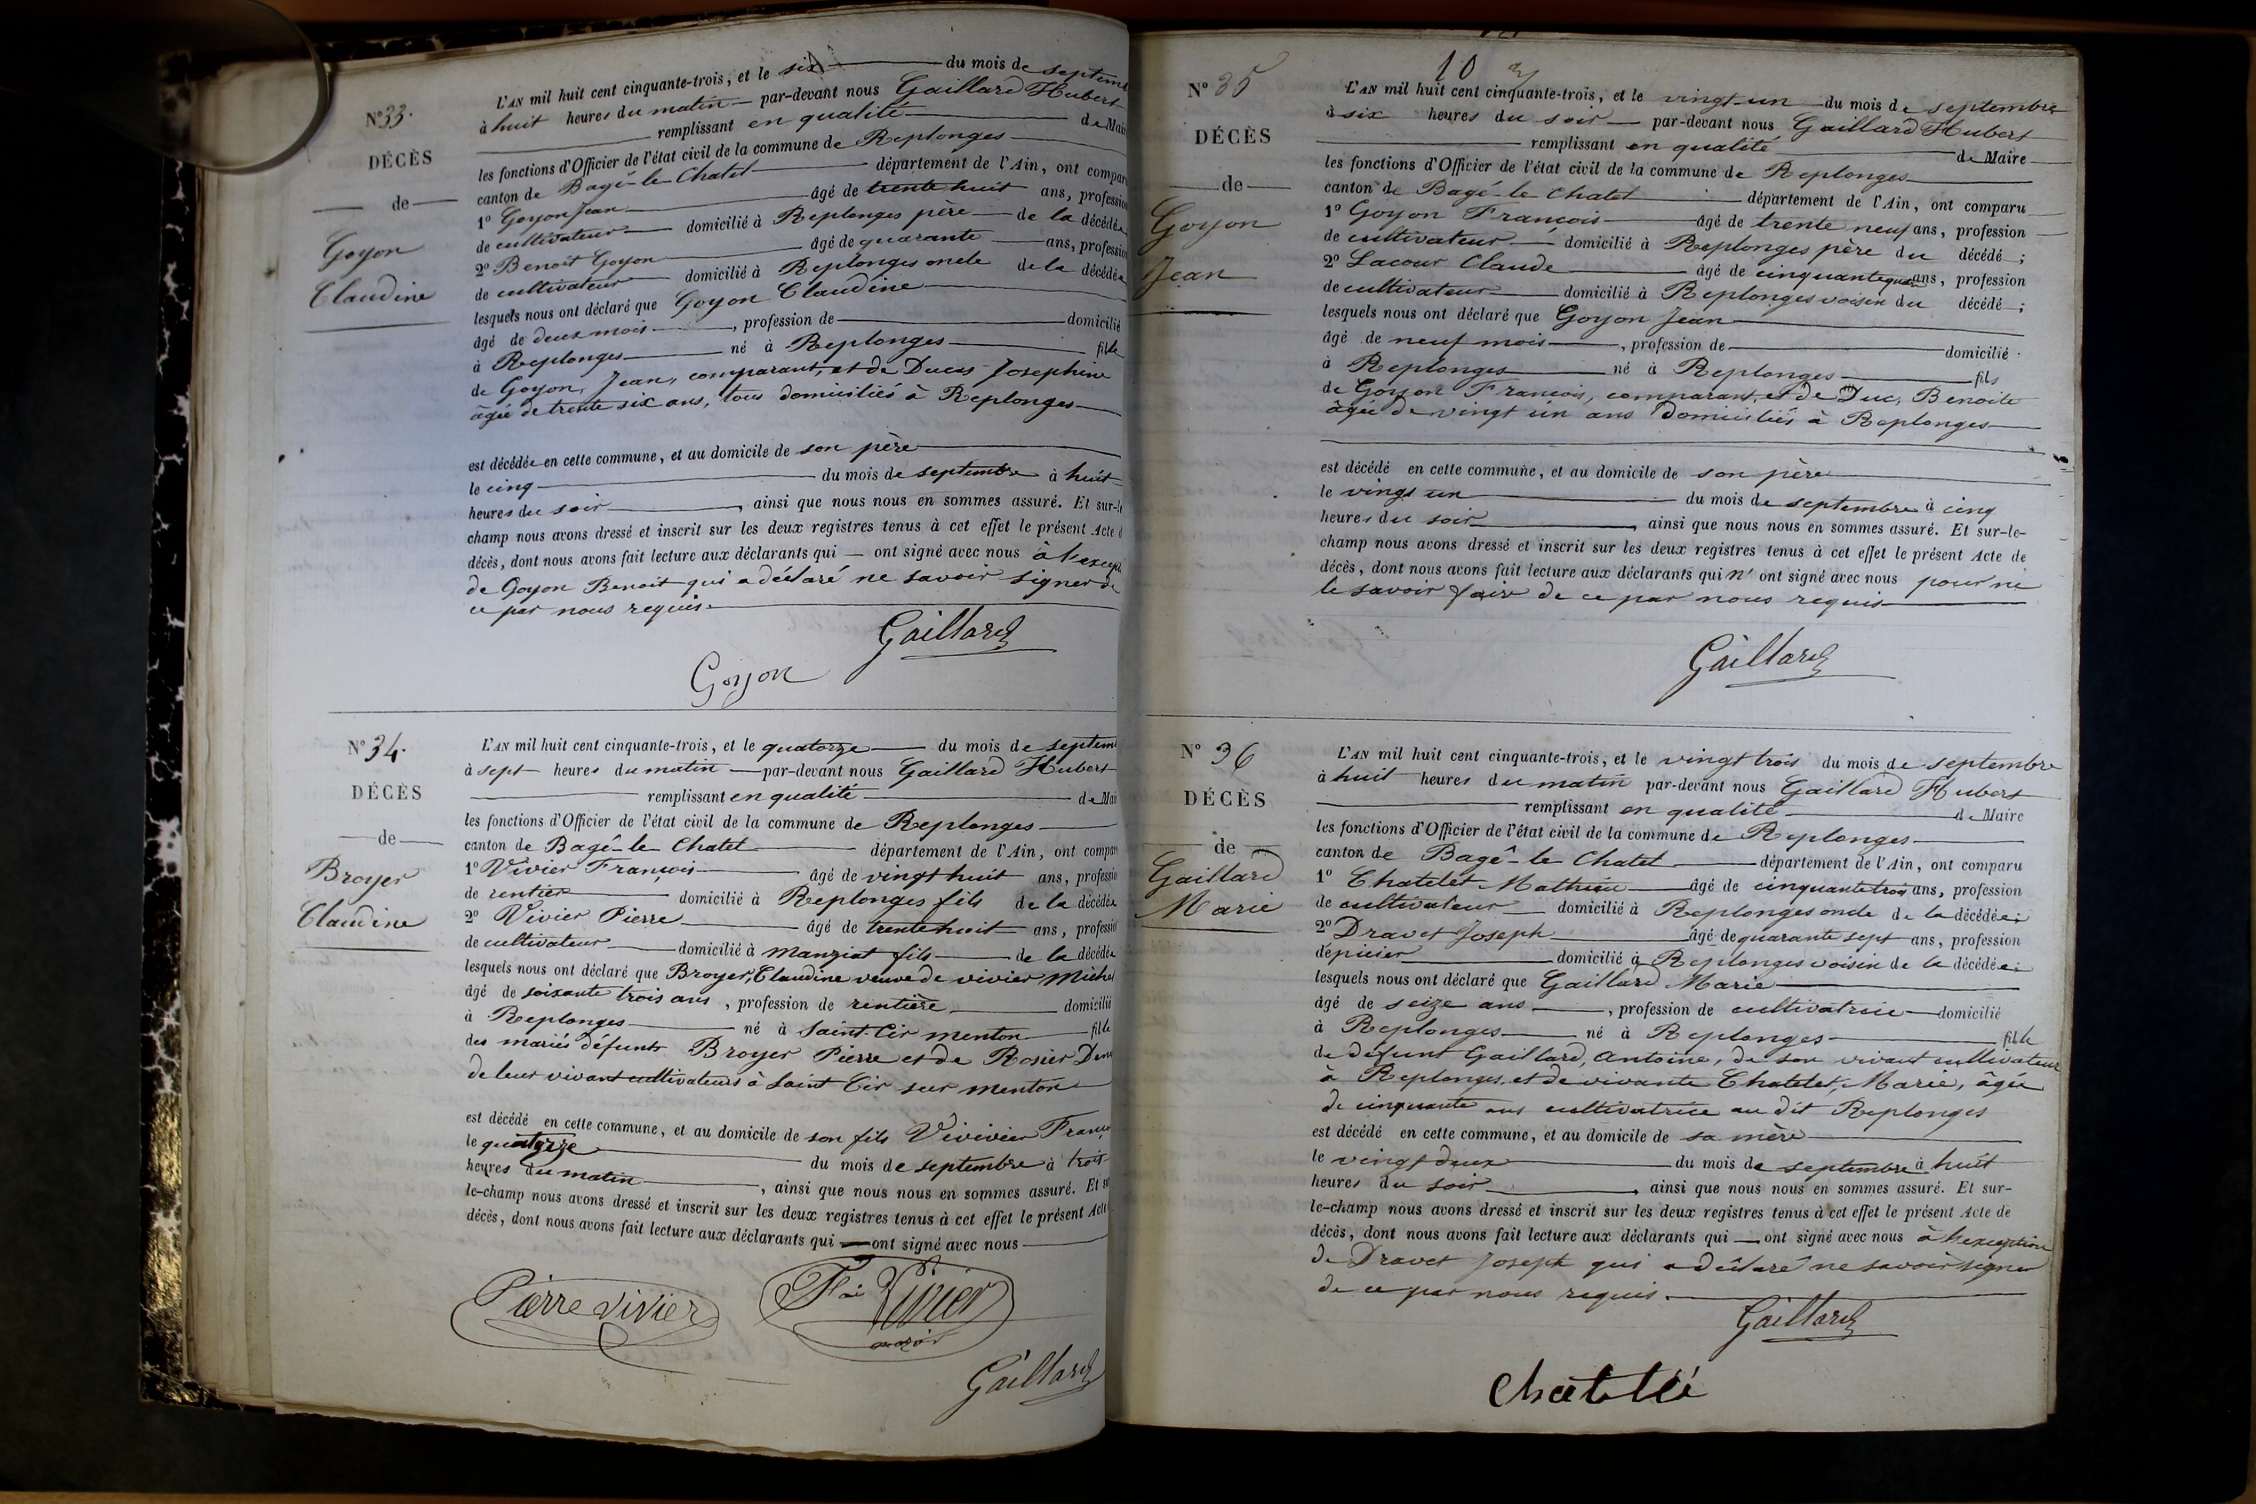 N° 33.
DÉCÈS
de
Goyon
Claudine
L'AN mil huit cent cinquante-trois, et le six du mois de septem
à huit heures du matin par-devant nous Gaillard Hubert
remplissant en qualité de Mai
les fonctions d'Officier de l'état civil de la commune de Replonges
canton de Bagé-le Chatel département de l'Ain, ont compar
1° Goyon Jean âgé de trente huit ans, profession
de cultivateur domicilié à Replonges père de la décédée
2° Benoit Goyon âgé de quarante ans, profession
de cultivateur domicilié à Replonges oncle de la décédée
lesquels nous ont déclaré que Goyon Claudine
âgé de deux mois, profession de domicilié
à Replonges né à Replonges fille
de Goyon, Jean, comparant, et de Ducas Josephine
âgée de trente six ans, tous domiciliés à Replonges
est décédée en cette commune, et au domicile de son père
le cinq du mois de septembre à huit
heures du soir, ainsi que nous nous en sommes assuré. Et sur-l
champ nous avons dressé et inscrit sur les deux registres tenus à cet effet le présent Acte d
décès, dont nous avons fait lecture aux déclarants qui — ont signé avec nous à l'excep
de Goyon Benoit qui a déclaré ne savoir signer de
ce par nous requis.
Gaillard
Goyon
N° 34.
DÉCÈS
de
Broyer
Claudine
L'AN mil huit cent cinquante-trois, et le quatorze du mois de septem
à sept heures du matin par-devant nous Gaillard Hubert
remplissant en qualité de Mai
les fonctions d'Officier de l'état civil de la commune de Replonges
canton de Bagé-le Chatel département de l'Ain, ont compar
1° Vivier François âgé de vingt huit ans, professio
de rentier domicilié à Replonges fils de la décédée
2° Vivier Pierre âgé de trente huit ans, professio
de cultivateur domicilié à Manziat fils de la décédée
lesquels nous ont déclaré que Broyer, Claudine veuve de vivier Michel
âgé de soixante trois ans, profession de rentière domicilié
à Replonges né à Saint-Cir menton fille
des mariés défunts Broyer Pierre et de Rosier
de leur vivant cultivateurs à Saint Cir sur menton
est décédé en cette commune, et au domicile de son fils Vivivier Franç
le quatorze du mois de septembre à trois
heures du matin, ainsi que nous nous en sommes assuré. Et su
le-champ nous avons dressé et inscrit sur les deux registres tenus à cet effet le présent Acte
décès, dont nous avons fait lecture aux déclarants qui — ont signé avec nous
Pierre vivier
Vivier
Gaillard
10
N° 35
DÉCÈS
de
Goyon
Jean
L'AN mil huit cent cinquante-trois, et le vingt-un du mois de septembre
à six heures du soir par-devant nous Gaillard Hubert
remplissant en qualité de Maire
les fonctions d'Officier de l'état civil de la commune de Replonges
canton de Bagé-le Chatel département de l'Ain, ont comparu
1° Goyon François âgé de trente neuf ans, profession
de cultivateur domicilié à Replonges père du décédé;
2° Lacour Claude âgé de cinquante quatre ans, profession
de cultivateur domicilié à Replonges voisin du décédé;
lesquels nous ont déclaré que Goyon Jean
âgé de neuf mois, profession de domicilié
à Replonges né à Replonges fils
de Goyon François, comparant, et de Duc, Benoite
âgée de vingt un ans domiciliés à Replonges
est décédé en cette commune, et au domicile de son père
le vingt un du mois de septembre à cinq
heures du soir, ainsi que nous nous en sommes assuré. Et sur-le-
champ nous avons dressé et inscrit sur les deux registres tenus à cet effet le présent Acte de
décès, dont nous avons fait lecture aux déclarants qui n'ont signé avec nous pour ne
le savoir faire de ce par nous requis
Gaillard
N° 36
DÉCÈS
de
Gaillard
Marie
L'AN mil huit cent cinquante-trois, et le vingt trois du mois de septembre
à huit heures du matin par-devant nous Gaillard Hubert
remplissant en qualité de Maire
les fonctions d'Officier de l'état civil de la commune de Replonges
canton de Bagé-le Chatel département de l'Ain, ont comparu
1° Chatelet Mathieu âgé de cinquante trois ans, profession
de cultivateur domicilié à Replonges oncle de la décédée;
2° Dravet Joseph âgé de quarante sept ans, profession
d'épicier domicilié à Replonges voisin de la décédée;
lesquels nous ont déclaré que Gaillard Marie
âgé de seize ans, profession de cultivatrice domicilié
à Replonges né à Replonges fille
de défunt Gaillard, Antoine, de son vivant cultivateur
à Replonges, et de vivante Chatelet, Marie, âgée
de cinquante ans cultivatrice au dit Replonges
est décédé en cette commune, et au domicile de sa mère
le vingt deux du mois de septembre à huit
heures du soir, ainsi que nous nous en sommes assuré. Et sur-
le-champ nous avons dressé et inscrit sur les deux registres tenus à cet effet le présent Acte de
décès, dont nous avons fait lecture aux déclarants qui — ont signé avec nous à l'exception
de Dravet Joseph qui a déclaré ne savoir signer
de ce par nous requis.
Gaillard